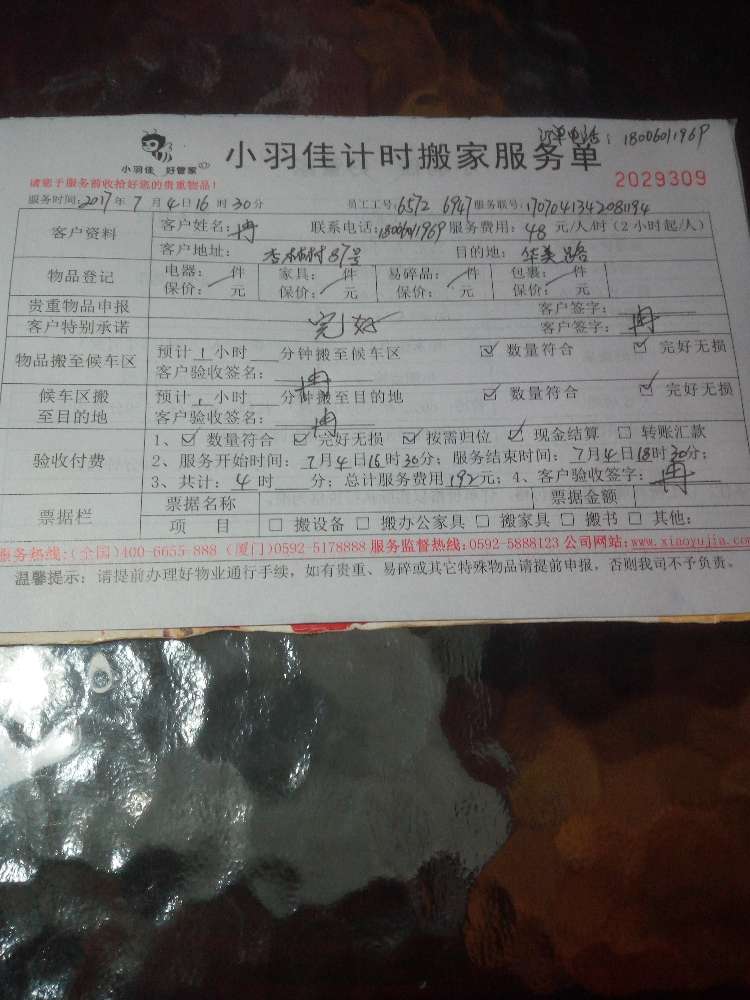 订单电话：18006011969
小羽佳 好管家
小羽佳计时搬家服务单
请您于服务前收拾好您的贵重物品！
2029309
服务时间:2017年7月4日16时30分 员工工号:6572 6947 服务联号:1707041342081194
客户资料 客户姓名:冉 联系电话:18006011969 服务费用:48元/人/时(2小时起/人)
客户地址: 杏林村87号 目的地: 华美路
物品登记 电器: 件 家具: 件 易碎品: 件 包裹: 件
保价: 元 保价: 元 保价: 元 保价: 元
贵重物品申报 客户签字:
客户特别承诺 完好 客户签字: 冉
物品搬至候车区 预计1小时 分钟搬至候车区 ☑ 数量符合 ☑ 完好无损
客户验收签名: 冉
候车区搬至目的地 预计1小时 分钟搬至目的地 ☑ 数量符合 ☑ 完好无损
客户验收签名: 冉
验收付费 1、☑ 数量符合 ☑ 完好无损 ☑ 按需归位 ☑ 现金结算 □ 转账汇款
2、服务开始时间: 7月4日16时30分; 服务结束时间: 7月4日18时30分;
3、共计: 4时 分; 总计服务费用192元; 4、客户验收签字: 冉
票据栏 票据名称 票据金额
项 目 □ 搬设备 □ 搬办公家具 □ 搬家具 □ 搬书 □ 其他:
服务热线:(全国)400-6655-888 (厦门)0592-5178888 服务监督热线:0592-5888123 公司网站:www.xiaoyujia.com
温馨提示: 请提前办理好物业通行手续，如有贵重、易碎或其它特殊物品请提前申报，否则我司不予负责。